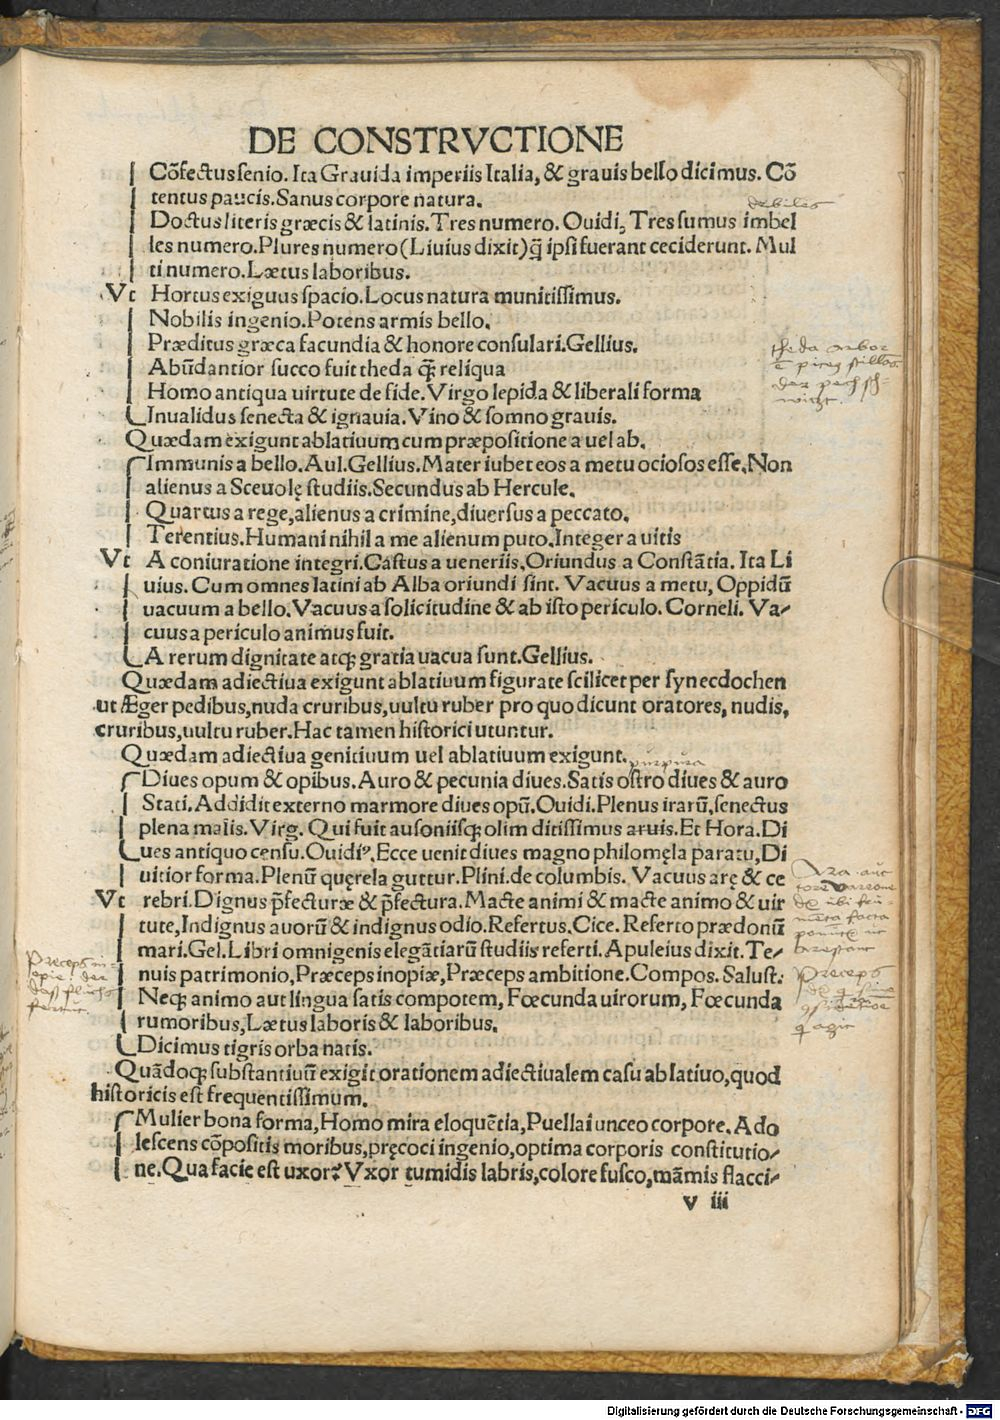 DE CONSTRVCTIONE
Cõfectus senio. Ita Grauida imperiis Italia, & grauis bello dicimus. Cõ
tentus paucis. Sanus corpore natura.
debiles
Doctus literis græcis & latinis. Tres numero. Ouidi, Tres sumus imbel
les numero. Plures numero (Liuius dixit) q̃ ipsi fuerant ceciderunt. Mul
ti numero. Lætus laboribus.
Vt Hortus exiguus spacio. Locus natura munitissimus.
Nobilis ingenio. Potens armis bello.
Præditus græca facundia & honore consulari. Gellius.
Abũdantior succo fuit theda q̃ reliqua
Homo antiqua uirtute de fide. Virgo lepida & liberali forma
Inualidus senecta & ignauia. Vino & somno grauis.
Quædam exigunt ablatiuum cum præpositione a uel ab.
Immunis a bello. Aul. Gellius. Mater iubet eos a metu ociosos esse. Non
alienus a Sceuolę studiis. Secundus ab Hercule.
Quartus a rege, alienus a crimine, diuersus a peccato.
Terentius. Humani nihil a me alienum puto. Integer a uitis
Vt A coniuratione integri. Castus a ueneriis. Oriundus a Constãtia. Ita Li
uius. Cum omnes latini ab Alba oriundi sint. Vacuus a metu, Oppidũ
uacuum a bello. Vacuus a solicitudine & ab isto periculo. Corneli. Va-
cuus a periculo animus fuit.
A rerum dignitate atq; gratia uacua sunt. Gellius.
Quædam adiectiua exigunt ablatiuum figurate scilicet per synecdochen
ut Æger pedibus, nuda cruribus, uultu ruber pro quo dicunt oratores, nudis,
cruribus, uultu ruber. Hac tamen historici utuntur.
Quædam adiectiua genitiuum uel ablatiuum exigunt.
purpura
Diues opum & opibus. Auro & pecunia diues. Satis ostro diues & auro
Stati. Addidit externo marmore diues opũ. Ouidi. Plenus irarũ, senectus
plena malis. Virg. Qui fuit ausoniisq; olim ditissimus aruis. Et Hora. Di
ues antiquo censu. Ouidiꝰ. Ecce uenit diues magno philomęla paratu, Di
uitior forma. Plenũ quęrela guttur. Plini. de columbis. Vacuus arę & ce
Vt rebri. Dignus p̃fecturæ & p̃fectura. Macte animi & macte animo & uir
tute, Indignus auorũ & indignus odio. Refertus. Cice. Referto prædonũ
mari. Gel. Libri omnigenis elegãtiarũ studiis referti. Apuleius dixit. Te-
nuis patrimonio, Præceps inopiæ, Præceps ambitione. Compos. Salust.
Neq; animo aut lingua satis compotem, Fœcunda uirorum, Fœcunda
rumoribus, Lætus laboris & laboribus.
Dicimus tigris orba natis.
Quãdoq; substantiuũ exigit orationem adiectiualem casu ablatiuo, quod
historicis est frequentissimum.
Mulier bona forma, Homo mira eloquẽtia, Puella iunceo corpore. Ado
lescens cõpositis moribus, pręcoci ingenio, optima corporis constitutio-
ne. Qua facie est uxor? Vxor tumidis labris, colore fusco, mãmis flacci-
v iii
theda arbor
Preceps
Digitalisierung gefördert durch die Deutsche Forschungsgemeinschaft - DFG